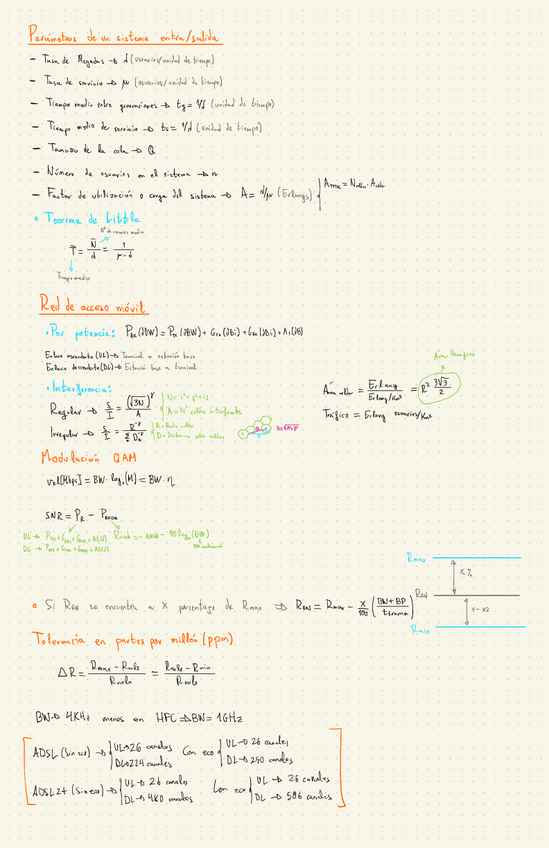 Parámetros de un sistema entra/salida
- Tasa de llegadas → λ (usuarios/unidad de tiempo)
- Tasa de servicio → μ (usuarios/unidad de tiempo)
- Tiempo medio entre generaciones → tg = 1/λ (unidad de tiempo)
- Tiempo medio de servicio → ts = 1/λ (unidad de tiempo)
- Tamaño de la cola → Q
- Número de usuarios en el sistema → n
- Factor de utilización o carga del sistema → A = λ/μ (Erlangs)
• Teorema de Little
Nº de usuarios medio
T = N/λ = 1/(μ-λ)
Tiempo medio
Red de acceso móvil
• Por potencia: PRx (dBW) = PTx (dBW) + GTx (dBi) + GRx (dBi) +
Enlace ascendente (UL) → Terminal a estación base
Enlace descendente (DL) → Estación base a terminal
• Interferencia:
Regular → S/I = (√3N)^γ/A
N = i² + j² + i·j
A = Nº celdas interferentes
Irregular → S/I =
R = Radio celda
D = Distancia entre celdas
Área Hexágono
Área celda = Erlang/Erlang/Km² = R² 3√3/2
Tráfico = Erlang · usuarios/Km²
Modulación QAM
vel [Mbps] = BW · log₂(M) = BW · η
SNR = PR -
• Si RSW se encuentra a X porcentaje de Rmax ⇒ RSW = Rmax - X/100 (BN + BP/ttrama)
Rmax
X%
RSW
1-X%
Rmin
Tolerancia en partes por millón (ppm)
ΔR = Rmax - Rnulo/Rnulo = Rnulo - Rmin/Rnulo
BW → 4KHz menos en HFC ⇒ BW = 1GHz
ADSL (Sin eco) → UL → 26 canales
DL → 224 canales
Con eco UL → 26 canales
DL → 250 canales
ADSL 2+ (Sin eco) → UL → 26 canales
DL → 480 canales
Con eco UL → 26 canales
DL → 506 canales